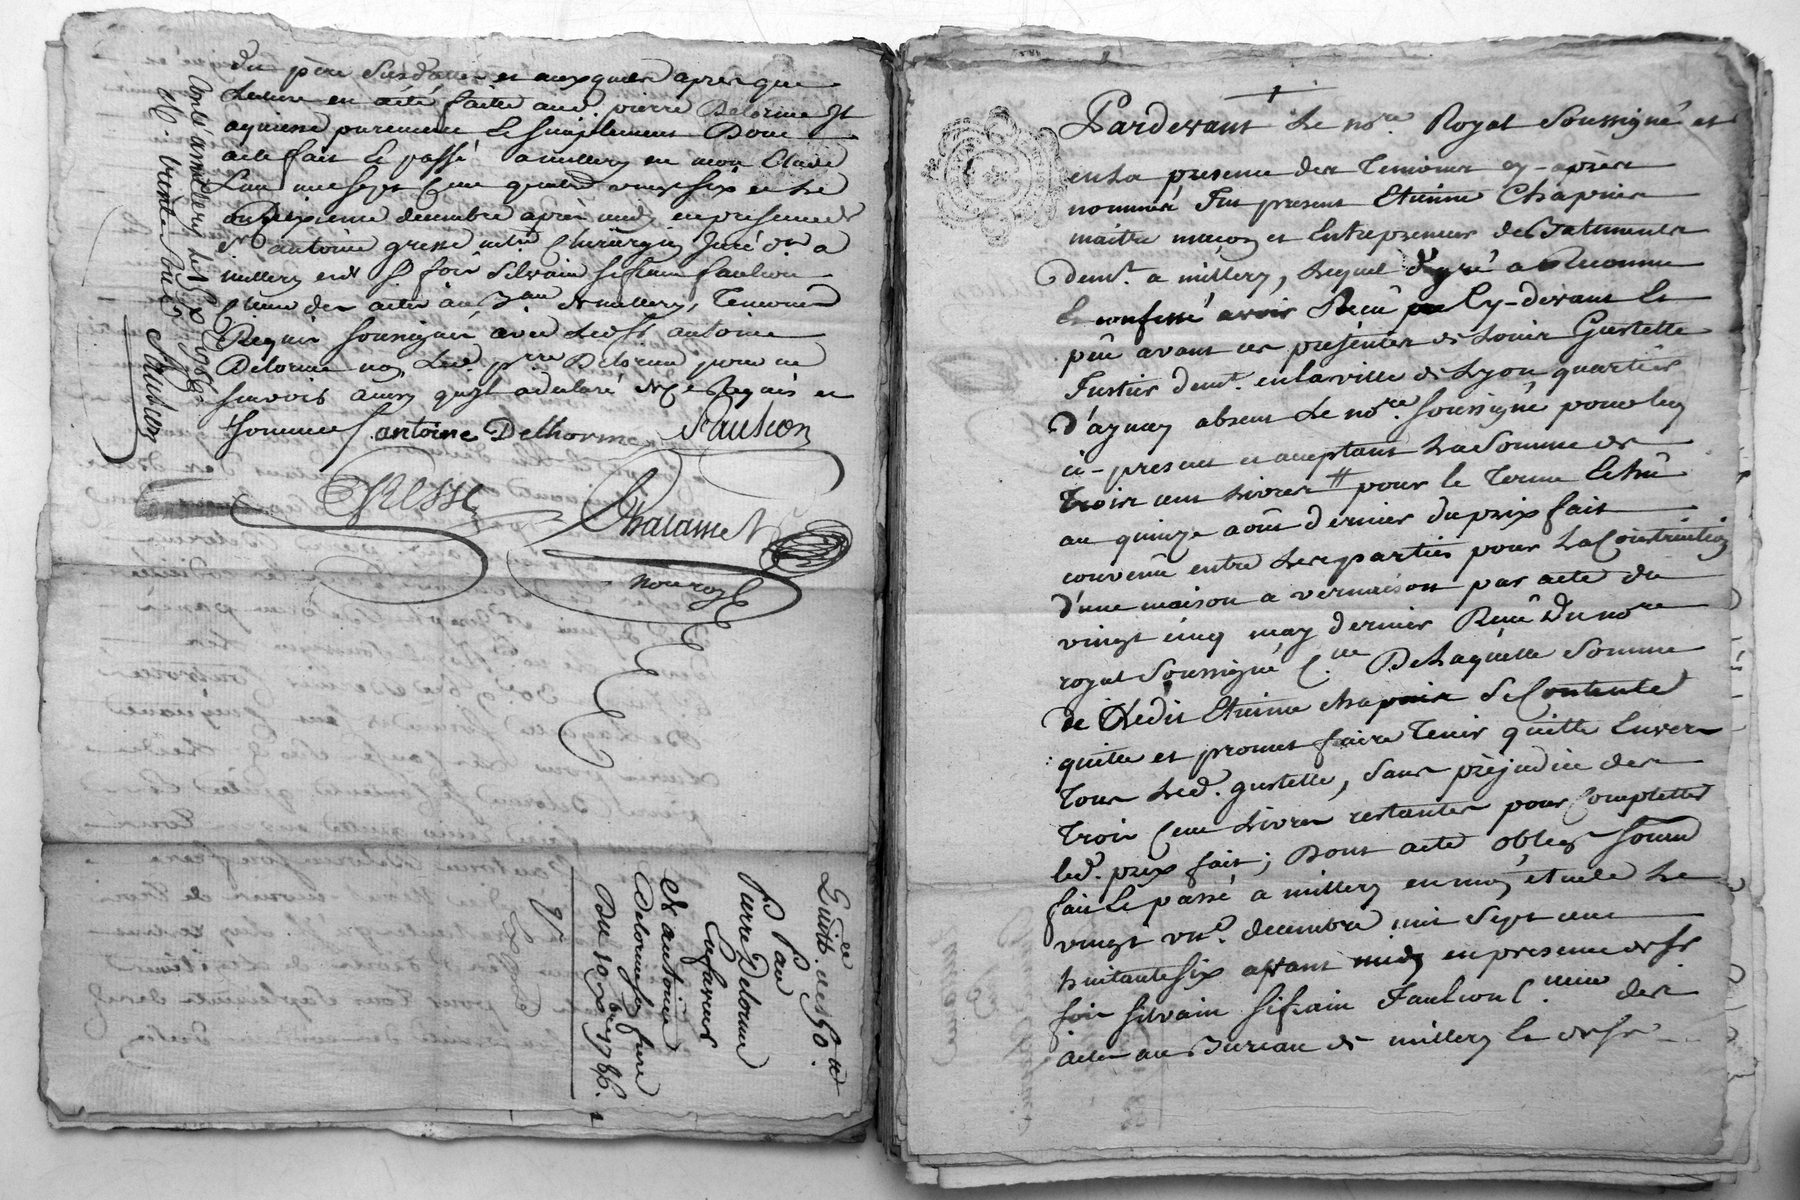 du père Susdatte et auxquels apres que
Lecture en a été faitte aud. pierre Delorme Il
aquiesse purement Et simplement Dont
acte fait Et passé a millery en mon Etude
L'an mil sept Cent quatre vingt six et Le
dixieme decembre après midy en presence de
Sr antoine gresse mtre Chirurgien Juré dt a
millery et de Sr foix Silvain Sifrain Faulcon
Cmis des actes au Bau de millery, Temoins
Requis soussignés avec Led. Sr antoine
Delorme non Led. prre Delorme pour ne
scavoir ainsy qu'il a declaré de Ce Requis et
sommé antoine Delhorme Faulcon
Gresse Chatamet
not. roy.
Contlé a millery le 15 Xbre 1786
Rc. trente sous Faulcon
Quittce de 50 tt
Par
Pierre Delorme
En faveur
de antoine
Delorme son frere
Du 10 Xbre 1786.
Pardevant Le nore. Royal Soussigné et
en La presence des Temoins cy-après
nommés Fut present Etienne Chapuis
maitre maçon et Entrepreneur de Batiments
demt. a millery, Lequel de gré a Reconnu
Et confessé avoir Recu Cy-devant Et
peu avant ces présentes de Louis Gustelle
Fustier demt. en la ville de Lyon quartier
D'aynay absent Le nore. soussigné pour luy
ci-present et acceptant La Somme de
Trois cent Livres tt pour le Terme Echû
au quinze août dernier du prix fait
convenû entre Les parties pour La Construction
d'une maison a vernaison par acte du
vingt cinq may dernier Recu Du nore
royal Soussigné De Laquelle Somme
de Ledit Etienne chapuis Se Contente
quitte et promet faire Tenir quitte Envers
Tous Led. gustelle, Sans prèjudice des
Trois Cent Livres restantes pour Completter
led. prix fait; Dont acte oblig soum
fait Et passé a millery en mon etude Le
vingt vn. decembre mil Sept cent
huitante six avant midy en presence de Sr
foix Silvain Sifrain Faulcon Cmis des
actes au Bureau de millery Et de Sr